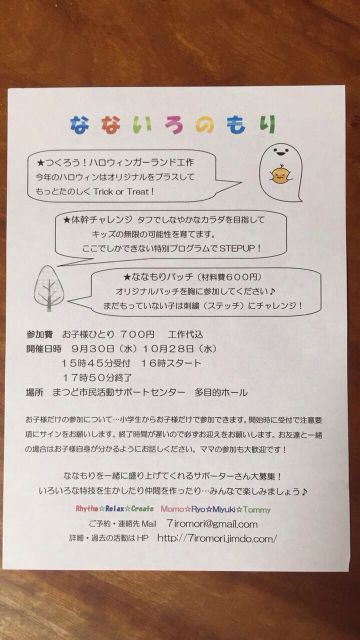 なないろのもり
★つくろう！ハロウィンガーランド工作
今年のハロウィンはオリジナルをプラスして
もっとたのしく Trick or Treat！
★体幹チャレンジ タフでしなやかなカラダを目指して
キッズの無限の可能性を育てます。
ここでしかできない特別プログラムでSTEPUP！
★ななもりパッチ（材料費６００円）
オリジナルパッチを胸に参加してください♪
まだもっていない子は刺繍（ステッチ）にチャレンジ！
参加費　お子様ひとり ７００円　工作代込
開催日時　９月３０日（水）１０月２８日（水）
１５時４５分受付　１６時スタート
１７時５０分終了
場所　まつど市民活動サポートセンター　多目的ホール
お子様だけの参加について…小学生からお子様だけで参加できます。開始時に受付で注意要
項にサインをお願いします。終了時間が遅いので必ずお迎えをお願いします。お友達と一緒
の場合はお子様自身が分かるようにお話しください。ママの参加も大歓迎です！
ななもりを一緒に盛り上げてくれるサポーターさん大募集！
いろいろな特技を生かしたり仲間を作ったり…みんなで楽しみましょう♪
Rhythm☆Relax☆Create　Momo☆Ryo☆Miyuki☆Tommy
ご予約・連絡先 Mail　7iromori@gmail.com
詳細・過去の活動は HP　http://7iromori.jimdo.com/